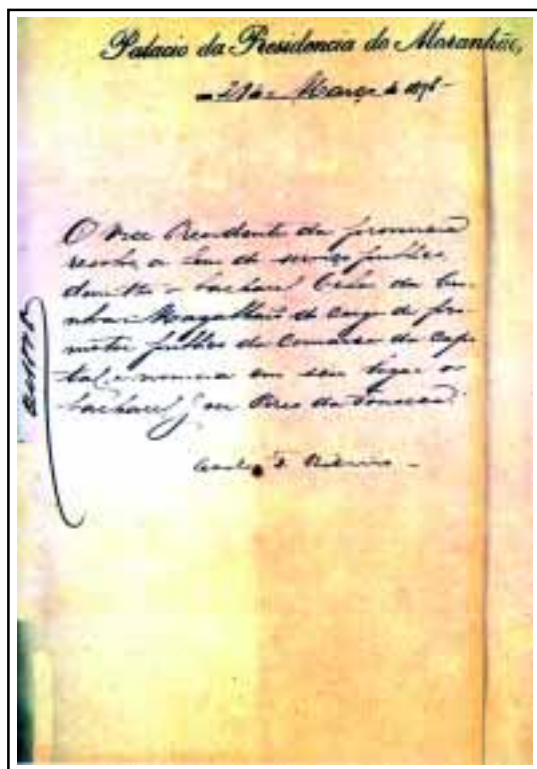 Palacio da Presidencia do Maranhão,
Março de 1878
O Vice Presidente da provincia
resolve a bem do serviço publico
demittir o bacharel Celso da Cu-
nha Magalhães do cargo de pro-
motor publico da Comarca da Capi-
tal e nomeia em seu lugar o
bacharel José Pires da Fonseca
Carlos F. Ribeiro